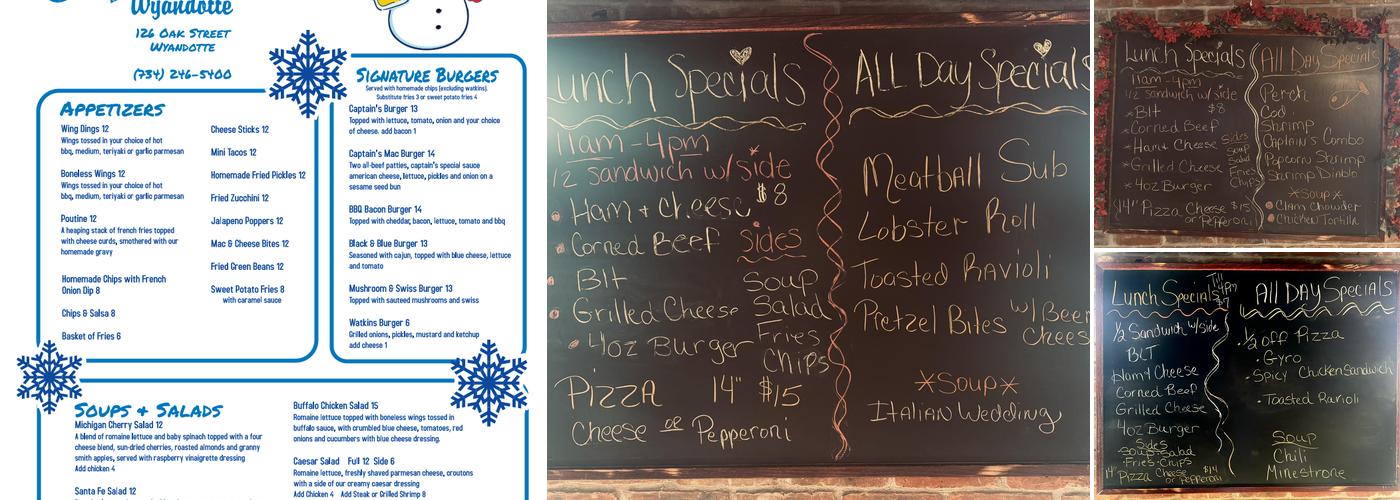 Wyandotte
126 Oak Street
Wyandotte
(734) 246-5400
Appetizers
Wing Dings 12
Wings tossed in your choice of hot
bbq, medium, teriyaki or garlic parmesan
Boneless Wings 12
Wings tossed in your choice of hot
bbq, medium, teriyaki or garlic parmesan
Poutine 12
A heaping stack of french fries topped
with cheese curds, smothered with our
homemade gravy
Homemade Chips with French
Onion Dip 8
Chips & Salsa 8
Basket of Fries 6
Cheese Sticks 12
Mini Tacos 12
Homemade Fried Pickles 12
Fried Zucchini 12
Jalapeno Poppers 12
Mac & Cheese Bites 12
Fried Green Beans 12
Sweet Potato Fries 8
with caramel sauce
Signature Burgers
Served with homemade chips (excluding watkins).
Substitute fries 3 or sweet potato fries 4
Captain's Burger 13
Topped with lettuce, tomato, onion and your choice
of cheese. add bacon 1
Captain's Mac Burger 14
Two all-beef patties, captain's special sauce
american cheese, lettuce, pickles and onion on a
sesame seed bun
BBQ Bacon Burger 14
Topped with cheddar, bacon, lettuce, tomato and bbq
Black & Blue Burger 13
Seasoned with cajun, topped with blue cheese, lettuce
and tomato
Mushroom & Swiss Burger 13
Topped with sauteed mushrooms and swiss
Watkins Burger 6
Grilled onions, pickles, mustard and ketchup
add cheese 1
Soups & Salads
Michigan Cherry Salad 12
A blend of romaine lettuce and baby spinach topped with a four
cheese blend, sun-dried cherries, roasted almonds and granny
smith apples, served with raspberry vinaigrette dressing
Add chicken 4
Santa Fe Salad 12
Buffalo Chicken Salad 15
Romaine lettuce topped with boneless wings tossed in
buffalo sauce, with crumbled blue cheese, tomatoes, red
onions and cucumbers with blue cheese dressing.
Caesar Salad Full 12 Side 6
Romaine lettuce, freshly shaved parmesan cheese, croutons
with a side of our creamy caesar dressing
Add Chicken 4 Add Steak or Grilled Shrimp 8
unch Specials
11am-4pm
1/2 sandwich w/side
$8
Ham + cheese
Corned Beef
Blt
Grilled Cheese
4oz Burger
Sides
Soup
Salad
Fries
Chips
Pizza 14" $15
Cheese or Pepperoni
ALL Day Specials
Meatball Sub
Lobster Roll
Toasted Ravioli
Pretzel Bites w/ Beer
Chees
*Soup*
Italian Wedding
Lunch Specials
11am-4pm
1/2 sandwich w/ side
$8
*Blt
*Corned Beef
*Ham & Cheese
*Grilled Cheese
*4oz Burger
Sides
Soup
Salad
Fries
Chips
14" Pizza Cheese $15
or Pepperoni
All Day Specials
Perch
Cod
Shrimp
Captain's Combo
Popcorn Shrimp
Shrimp Diablo
*Soup*
Clam Chowder
Chicken Tortilla
Lunch Specials Till
4pm
$7
1/2 Sandwich w/ Side
BLT
Ham & Cheese
Corned Beef
Grilled Cheese
4oz Burger
Sides
Soup-Salad
-Fries-Chips
14" Pizza Cheese $14
or Pepperoni
All DAY SpecialS
1/2 off Pizza
Gyro
Spicy Chicken Sandwich
Toasted Ravioli
Soup
Chili
Minestrone